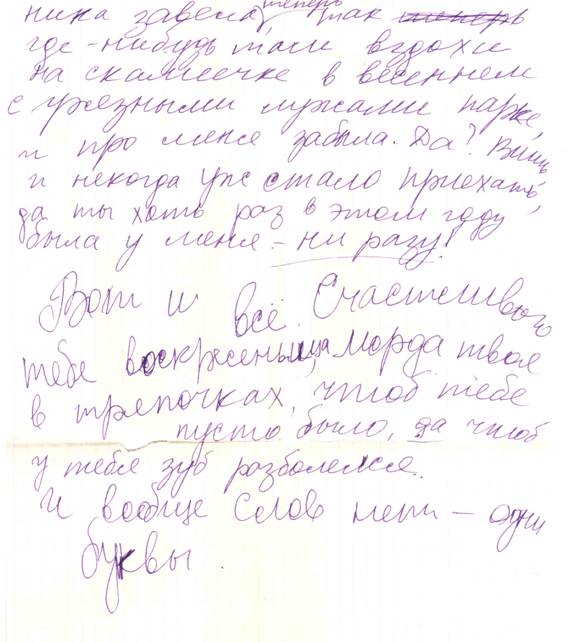 ника завела, теперь так теперь
где-нибудь там вздохи
на скамеечке в весеннем
с грязными лужами парке,
и про меня забыла. Да? Вишь
и некогда уж стало приехать,
да ты хоть раз в этом году
была у меня – ни разу!
Вот и всё. Счастливого
тебе воскресеньица морда твоя
в тряпочках, чтоб тебе
пусто было, да чтоб
у тебя зуб разболелся.
И вообще слов нет – одни
буквы.